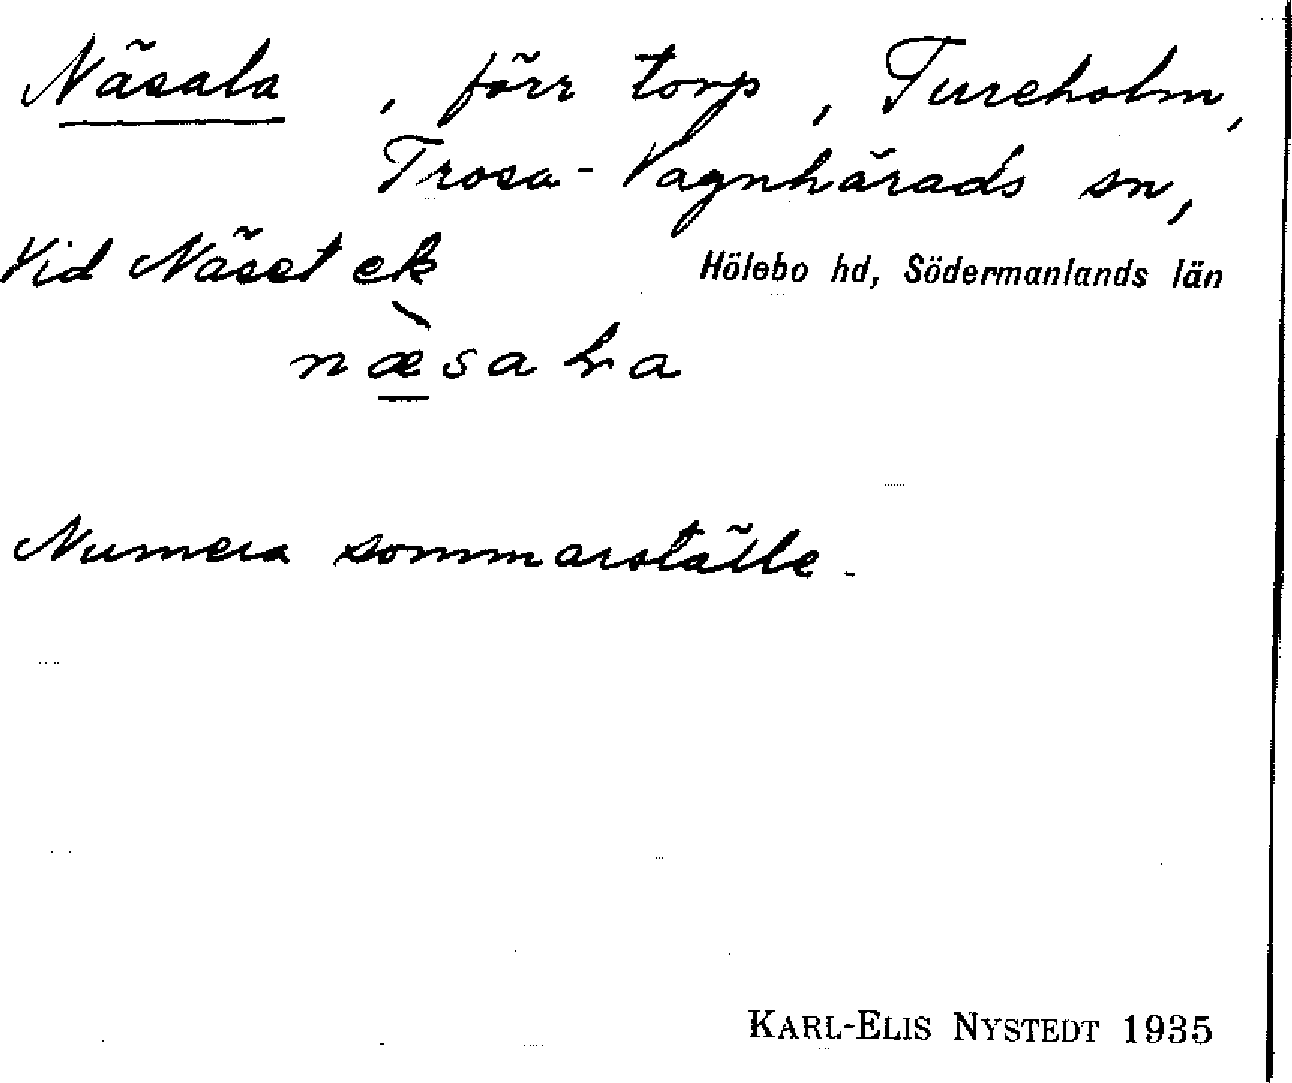 Näsala, förr torp, Tureholm,
Trosa-Vagnhärads sn,
Vid Näset ek
Hölebo hd, Södermanlands län
Numera sommarställe.
KARL-ELIS NYSTEDT 1935